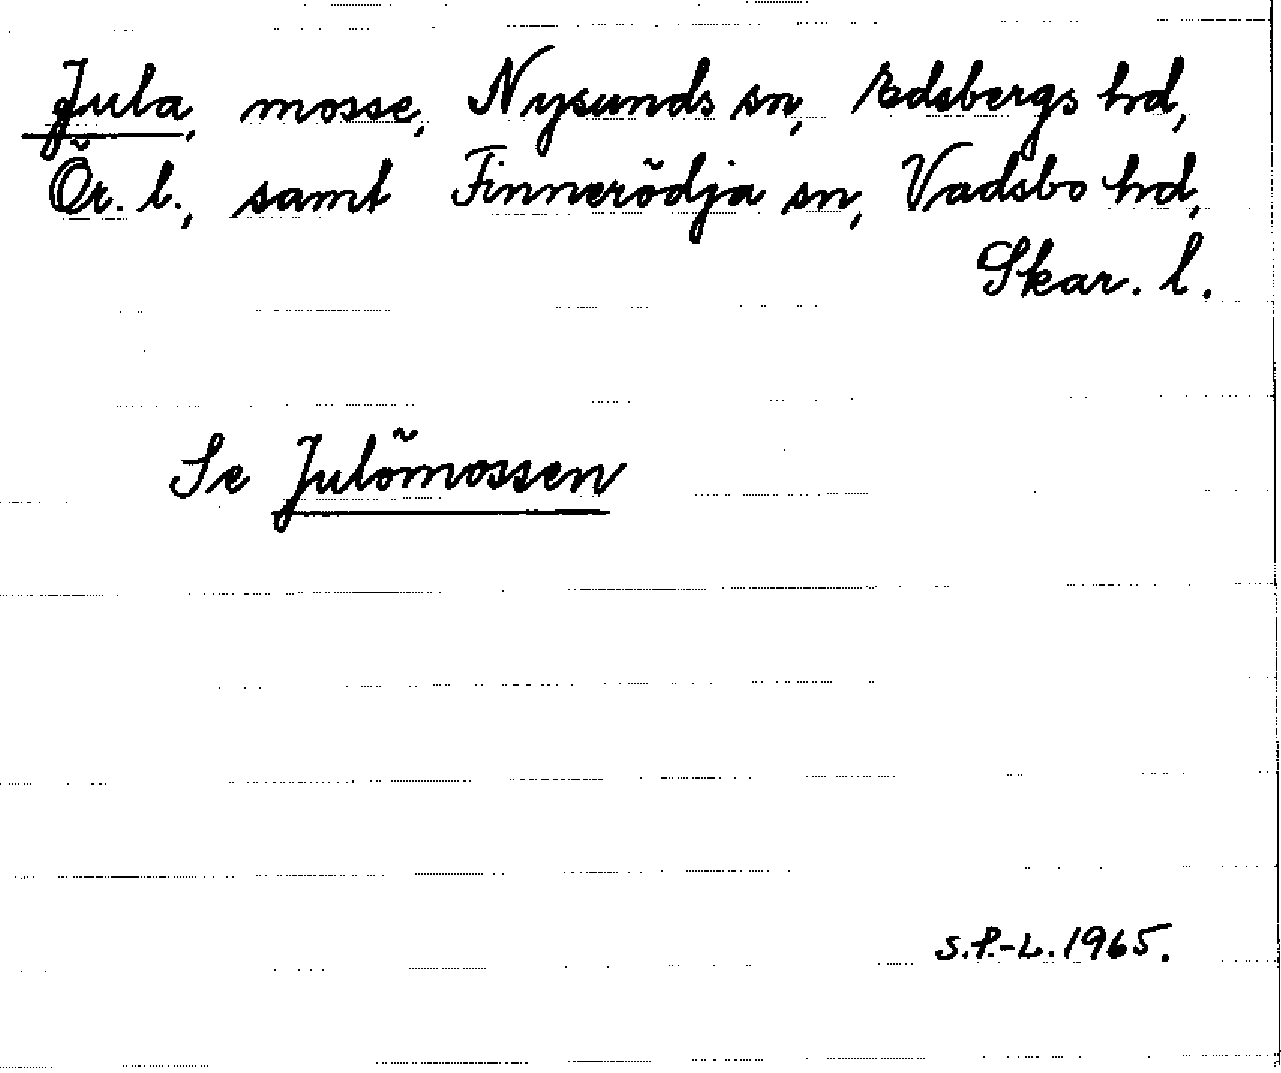 Jula, mosse, Nysunds sn, Edsbergs hd,
Ör. l., samt Finnerödja sn, Vadsbo hd,
Skar. l.
Se Julömossen
S.P.-L. 1965.